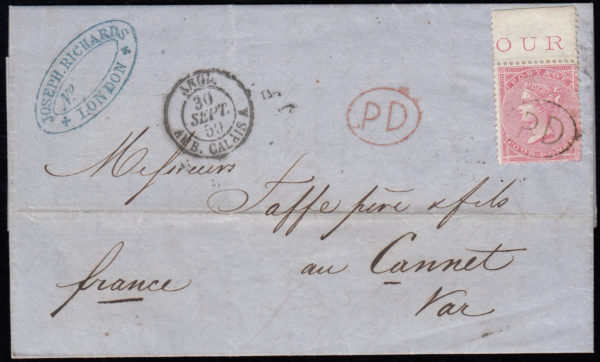 JOSEPH RICHARDS
No
LONDON
ANGL.
30
SEPT.
59
AMB. CALAIS A
PD
OUR
POSTAGE
PD
Messieurs
Jaffe père & fils
au Cannet
Var
france